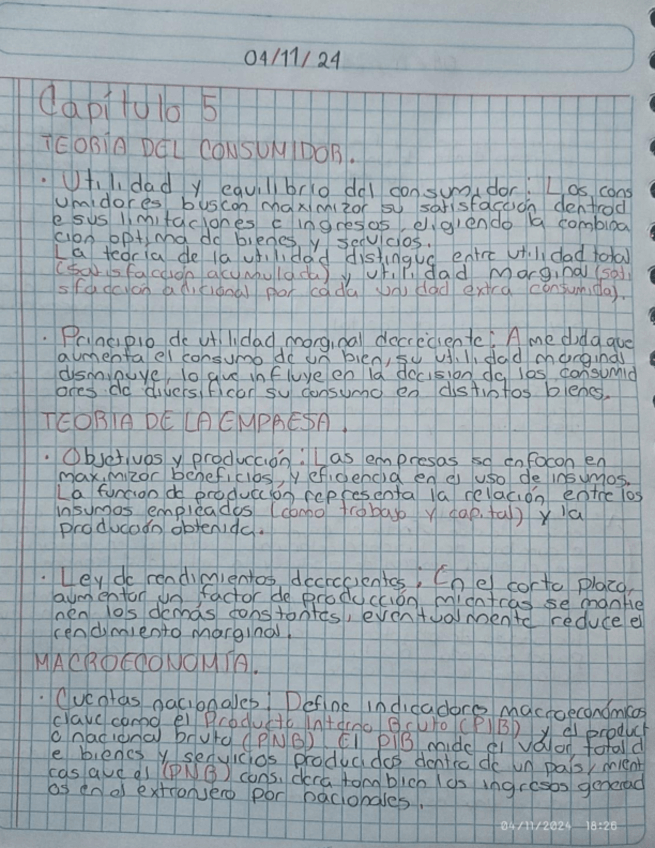 04/11/24
Capítulo 5
TEORIA DEL CONSUMIDOR.
· Utilidad y equilibrio del consumidor: Los cons
umidores buscan maximizar su satisfacción dentrod
e sus limitaciones e ingresos, eligiendo la combina
cion optima de bienes y servicios.
La teoría de la utilidad distingue entre utilidad total
(satisfacción acumulada) y utilidad marginal (sati
sfacción adicional por cada unidad extra consumida).
· Principio de utilidad marginal decreciente: A medida que
aumenta el consumo de un bien, su utilidad marginal
disminuye, lo que influye en la decision de los consumid
ores de diversificar su consumo en distintos bienes.
TEORIA DE LA EMPRESA.
· Objetivos y producción: Las empresas se enfocan en
maximizar beneficios, y eficiencia en el uso de insumos.
La función de producción representa la relación entre los
insumos empleados (como trabajo y capital) y la
producción obtenida.
· Ley de rendimientos decrecientes: En el corto plazo,
aumentar un factor de producción mientras se mantie
nen los demás constantes, eventualmente reduce el
rendimiento marginal.
MACROECONOMÍA.
· Cuentas nacionales: Define indicadores macroeconómicos
clave como el Producto Interno Bruto (PIB) y el product
o nacional bruto (PNB) El PIB mide el valor total d
e bienes y servicios producidos dentro de un país, mient
ras que el (PNB) considera tambien los ingresos generad
os en el extranjero por nacionales.
04/11/2024 18:26